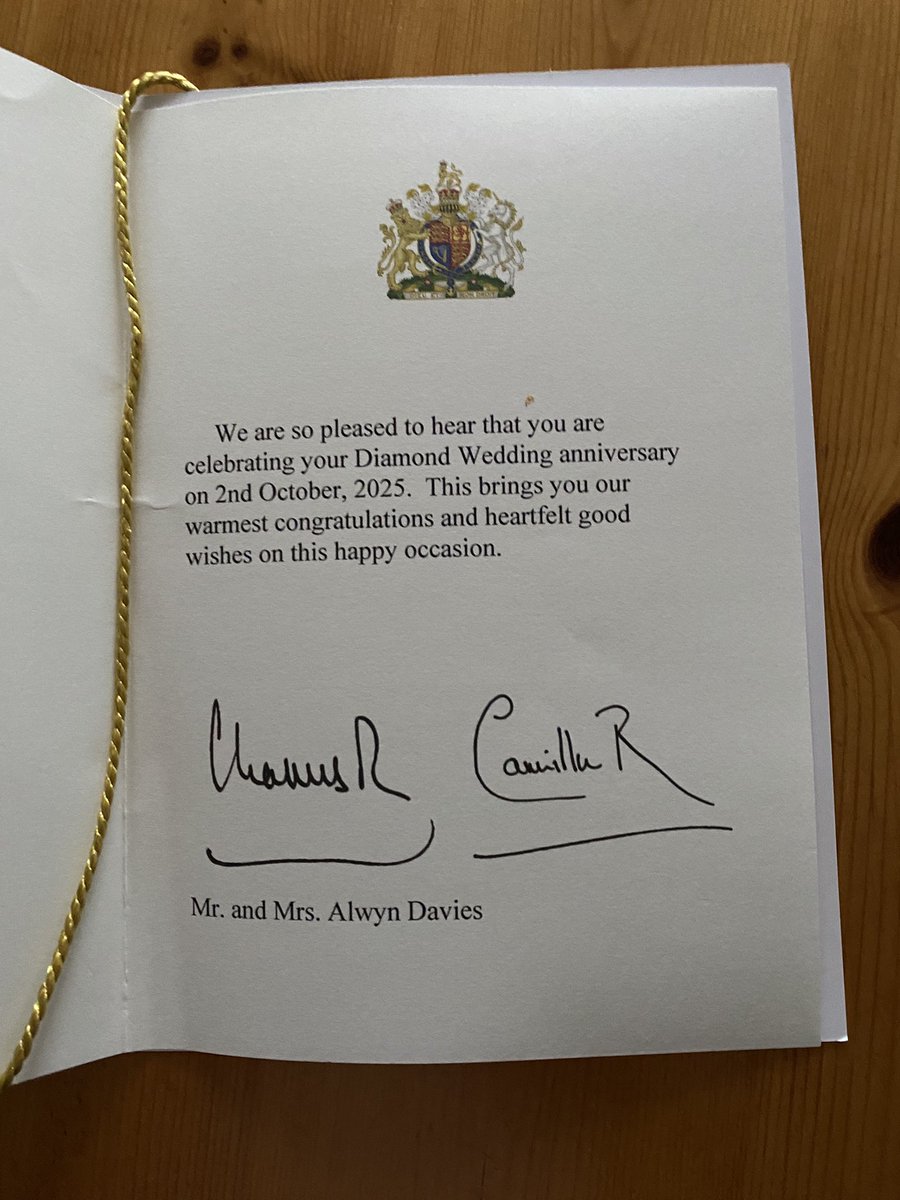 DIEU ET MON DROIT
We are so pleased to hear that you are
celebrating your Diamond Wedding anniversary
on 2nd October, 2025.  This brings you our
warmest congratulations and heartfelt good
wishes on this happy occasion.
Charles R Camilla R
Mr. and Mrs. Alwyn Davies